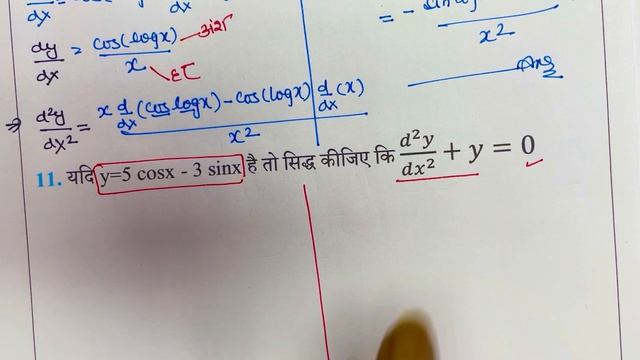 dx dx
dy/dx = cos(logx)/x अंश हर
= - x²
Ans
⇒ d²y/dx² = x d/dx (cos logx) - cos(logx) d/dx (x) / x²
11. यदि y=5 cosx - 3 sinx है तो सिद्ध कीजिए कि d²y/dx² + y = 0